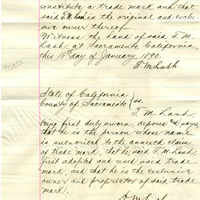 constitute a trade mark and that
said T. M. Lash is the original and exclu-
sive owner thereof.
Witness the hand of said T. M.
Lash at Sacramento California
this 16 day of January 1890.
T. M. Lash
State of California
County of Sacramento } ss.
T. M. Lash
being first duly sworn, deposes & says
that he is the person whose name
is subscribed to the annexed claim
of trade mark, that he said T. M. Lash
first adopted and used said trade
mark, and that he is the exclusive
owner and proprietor of said trade
mark.